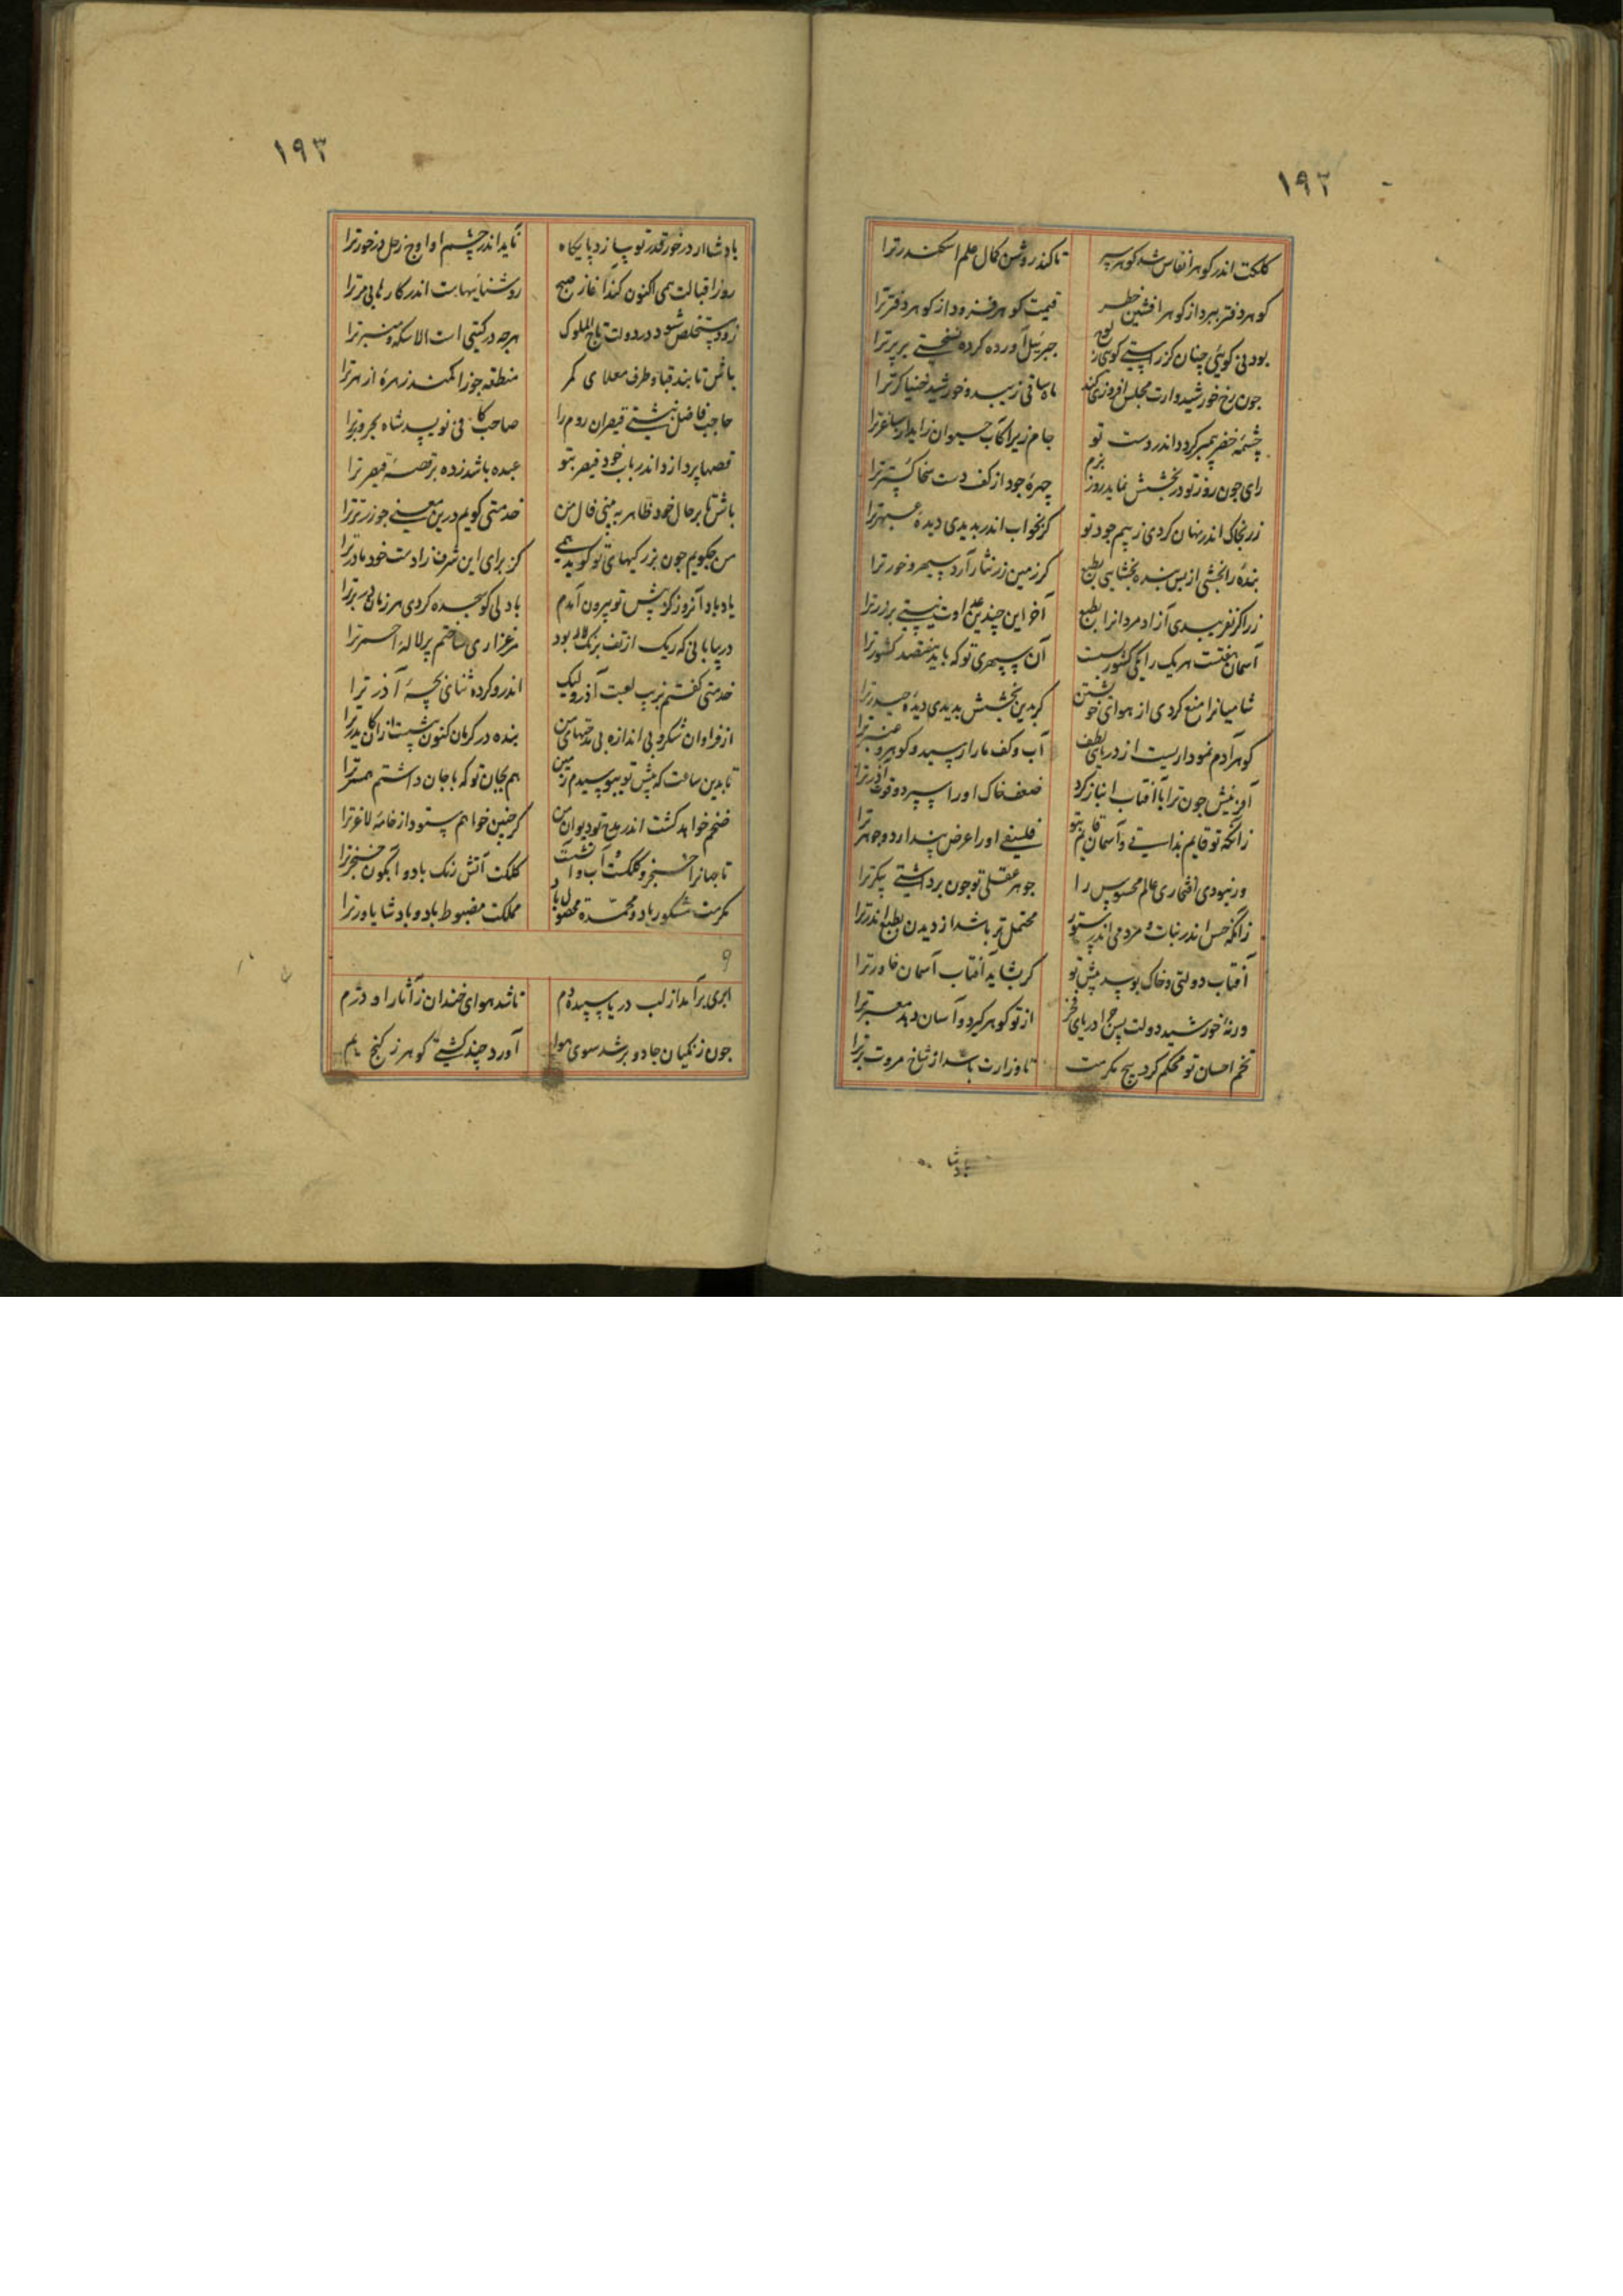 ١٩٢
کلکت اندر کوهر انفاس شد کوهر سپر تا کند روشن کمال علم اسکندر ترا
کوهر دفتر ببرد از کوهر افشین خطر قیمت کوهر فزود از کوهر دفتر ترا
بودنی کویی چنان کز راستی کویی جبرئیل آورده کرده نسختی بر پر ترا
چون رخ خورشیدوارت مجلس افروزی کند ماه ساقی زیبد و خورشید خنیاکر ترا
چشمهٔ خضر پیمبر کردد اندر دست تو جام زیرا کآب حیوان زاید از ساغر ترا
رای چون روز تو در بخشش نماید روز بزم چهرهٔ جود از کف دست سخا کستر ترا
زر بخاک اندر نهان کردی ز بیم جود تو کر بخواب اندر بدیدی دیدهٔ عبهر ترا
بنده را بخشی از بس بنده بخشایی بطبع کر زمین زر نثار آرد سپهر و خور ترا
زر اکر نفریبدی آزاد مردانرا بطبع آخر این چندین عداوت نیستی بر زر ترا
آسمان هفتست هر یک را یکی کشور بست آن سپهری تو که باید هفتصد کشور ترا
شامیانرا منع کردی از هوای خویشتن کر بدین بخشش بدیدی دیدهٔ حیدر ترا
کوهر آدم نمودار یست از دریای لطف آب و کف مار ارسید و کوهر و عنبر ترا
آفرینش چون ترا با آفتاب انباز کرد ضعف خاک او را سپرد و قوت آذر ترا
زانکه تو قایم بذاتستی و آسمان قایم بتو فلسفی او را عرض پندارد و جوهر ترا
ور نبودی افتخاری عالم محسوس را جوهر عقلی تو چون برداشتی پیکر ترا
زانکه حس اندر نبات و مردمی اندر ستور محتمل‌تر باشد از دیدن بطبع اندر ترا
آفتاب دولتی و خاک بوسد پیش تو کر بشاید آفتاب آسمان خاور ترا
ورنهٔ خورشید دولت پس چرا دریای فخر از تو کوهر کیرد و آسان دهد معبر ترا
تخم احسان تو محکم کرد بیخ مکرمت تا وزارت باشد از شاخ مروت بر ترا
بادشا
١٩٣
بادشا ار در خور قدر تو سازد پایکاه ناید اندر چشم او اوج زحل در خور ترا
روز اقبالت همی اکنون کند آغاز صبح روشنائیهاست اندر کارهای مر ترا
زود مستخلص شود در دولت تاج الملوک هرچه در کیتی است الا سکه و منبر ترا
باش تا بند قبا و طرف معلای کمر منطقه جوزا کند زهرهٔ ازهر ترا
حاجب فاضل نبشتی قیصران روم را صاحب کافی نویسد شاه بحر و بر ترا
قصها پردازد اندر باب خود قیصر بتو عبده باشد زده بر قصهٔ قیصر ترا
باش تا بر حال خود ظاهر ببینی فال من خدمتی کویم درین معنی چو زر تر ترا
من چکویم چون بزرکیهای تو کوید همی کز برای این شرف زادست خود مادر ترا
یاد باد آنروز کز پیش تو بیرون آمدم با دلی کو سجده کردی هر زمان بر در ترا
در بیابانی که ریک از تف برنک لاله بود مرغزاری ساختم پر لالهٔ احمر ترا
خدمتی کفتم بزیب لعبت آذر ولیک اندرو کرده ثنای بچهٔ آذر ترا
از فراوان شکر و بی اندازه بی مدحتهای من بنده در کرمان کنون بیشست از آن کایدر ترا
تا بدین ساعت که پیش تو ببوسیدم زمین هم بجان تو که با جان داشتم همسر ترا
ضخم خواهد کشت اندر مدح تو دیوان من کر چنین خواهم ستود از خامهٔ لاغر ترا
تا جهانرا خنجر و کلکت آب و آتشست کلکت آتش رنک باد و آبکون خنجر ترا
مکرمت مشکور باد و محمدت محصول باد مملکت مضبوط باد و بادشا یاور ترا
٩
ابری برآمد از لب دریا سپیده دم تا شد هوای خندان ز آثار او دژم
چون زنکیان جادو بر شد سوی هوا آورد چند کشتی کوهر ز کنج یم